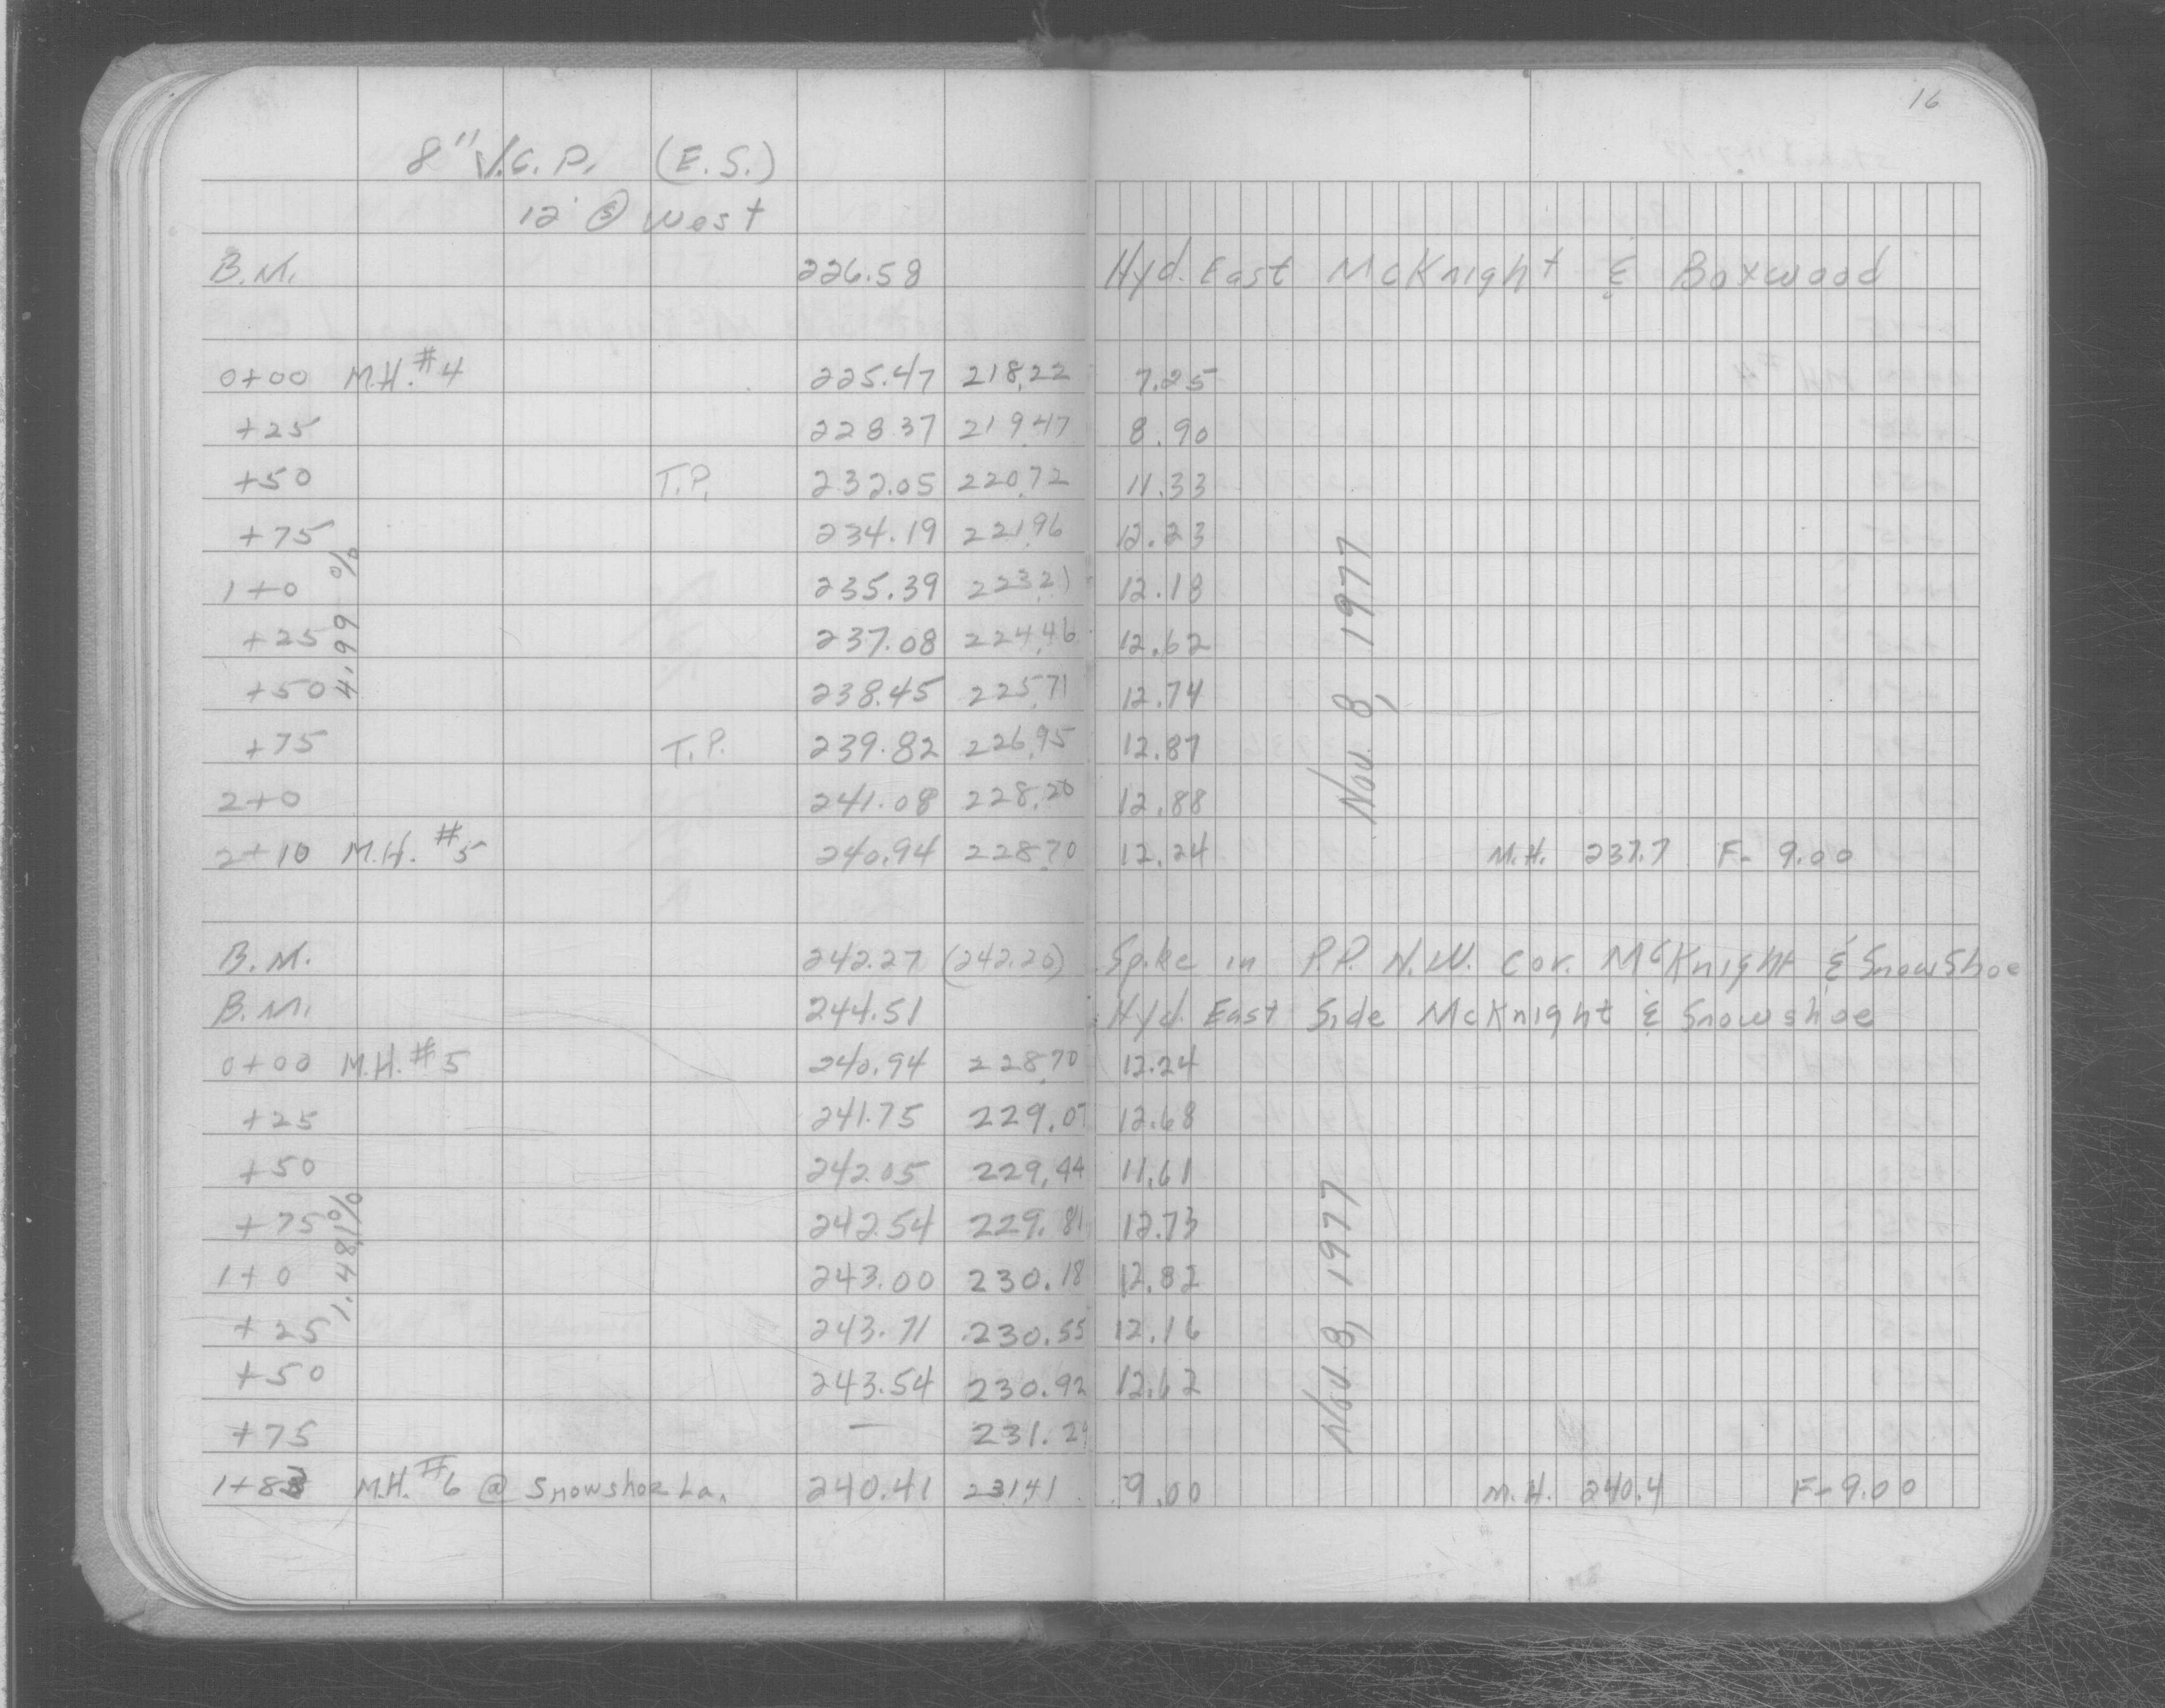 16
8" V.C.P. (E.S.)
12' @ West
B.M. 226.58 Hyd. East McKnight & Boxwood
0+00 M.H. #4 225.47 218.22 7.25
+25 228.37 219.47 8.90
+50 T.P. 232.05 220.72 11.33
+75 234.19 221.96 12.23
1+0 235.39 223.21 12.18
+25 237.08 224.46 12.62
+50 238.45 225.71 12.74
+75 T.P. 239.82 226.95 12.87
2+0 241.08 228.20 12.88
2+10 M.H. #5 240.94 228.70 12.24 M.H. 237.7 F- 9.00
4.99 %
Nov. 8, 1977
B.M. 242.27 (242.26) Spike in P.P. N.W. Cor. McKnight & Snowshoe
B.M. 244.51 Hyd. East Side McKnight & Snowshoe
0+00 M.H. #5 240.94 228.70 12.24
+25 241.75 229.07 12.68
+50 242.05 229.44 11.61
+75 242.54 229.81 12.73
1+0 243.00 230.18 12.82
+25 243.71 230.55 12.16
+50 243.54 230.92 12.62
+75 — 231.29
1+83 M.H. #6 @ Snowshoe La. 240.41 231.41 9.00 M.H. 240.4 F- 9.00
1.481%
Nov. 8, 1977